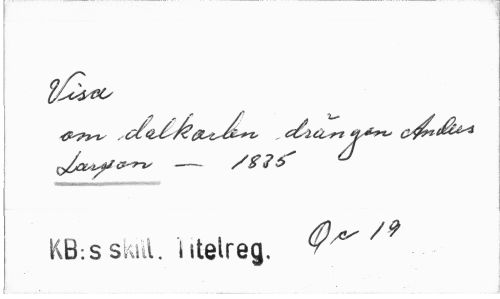 Visa
om dalkarlen drängen Anders
Larsson — 1835
Qc 19
KB:s skill. Titelreg.